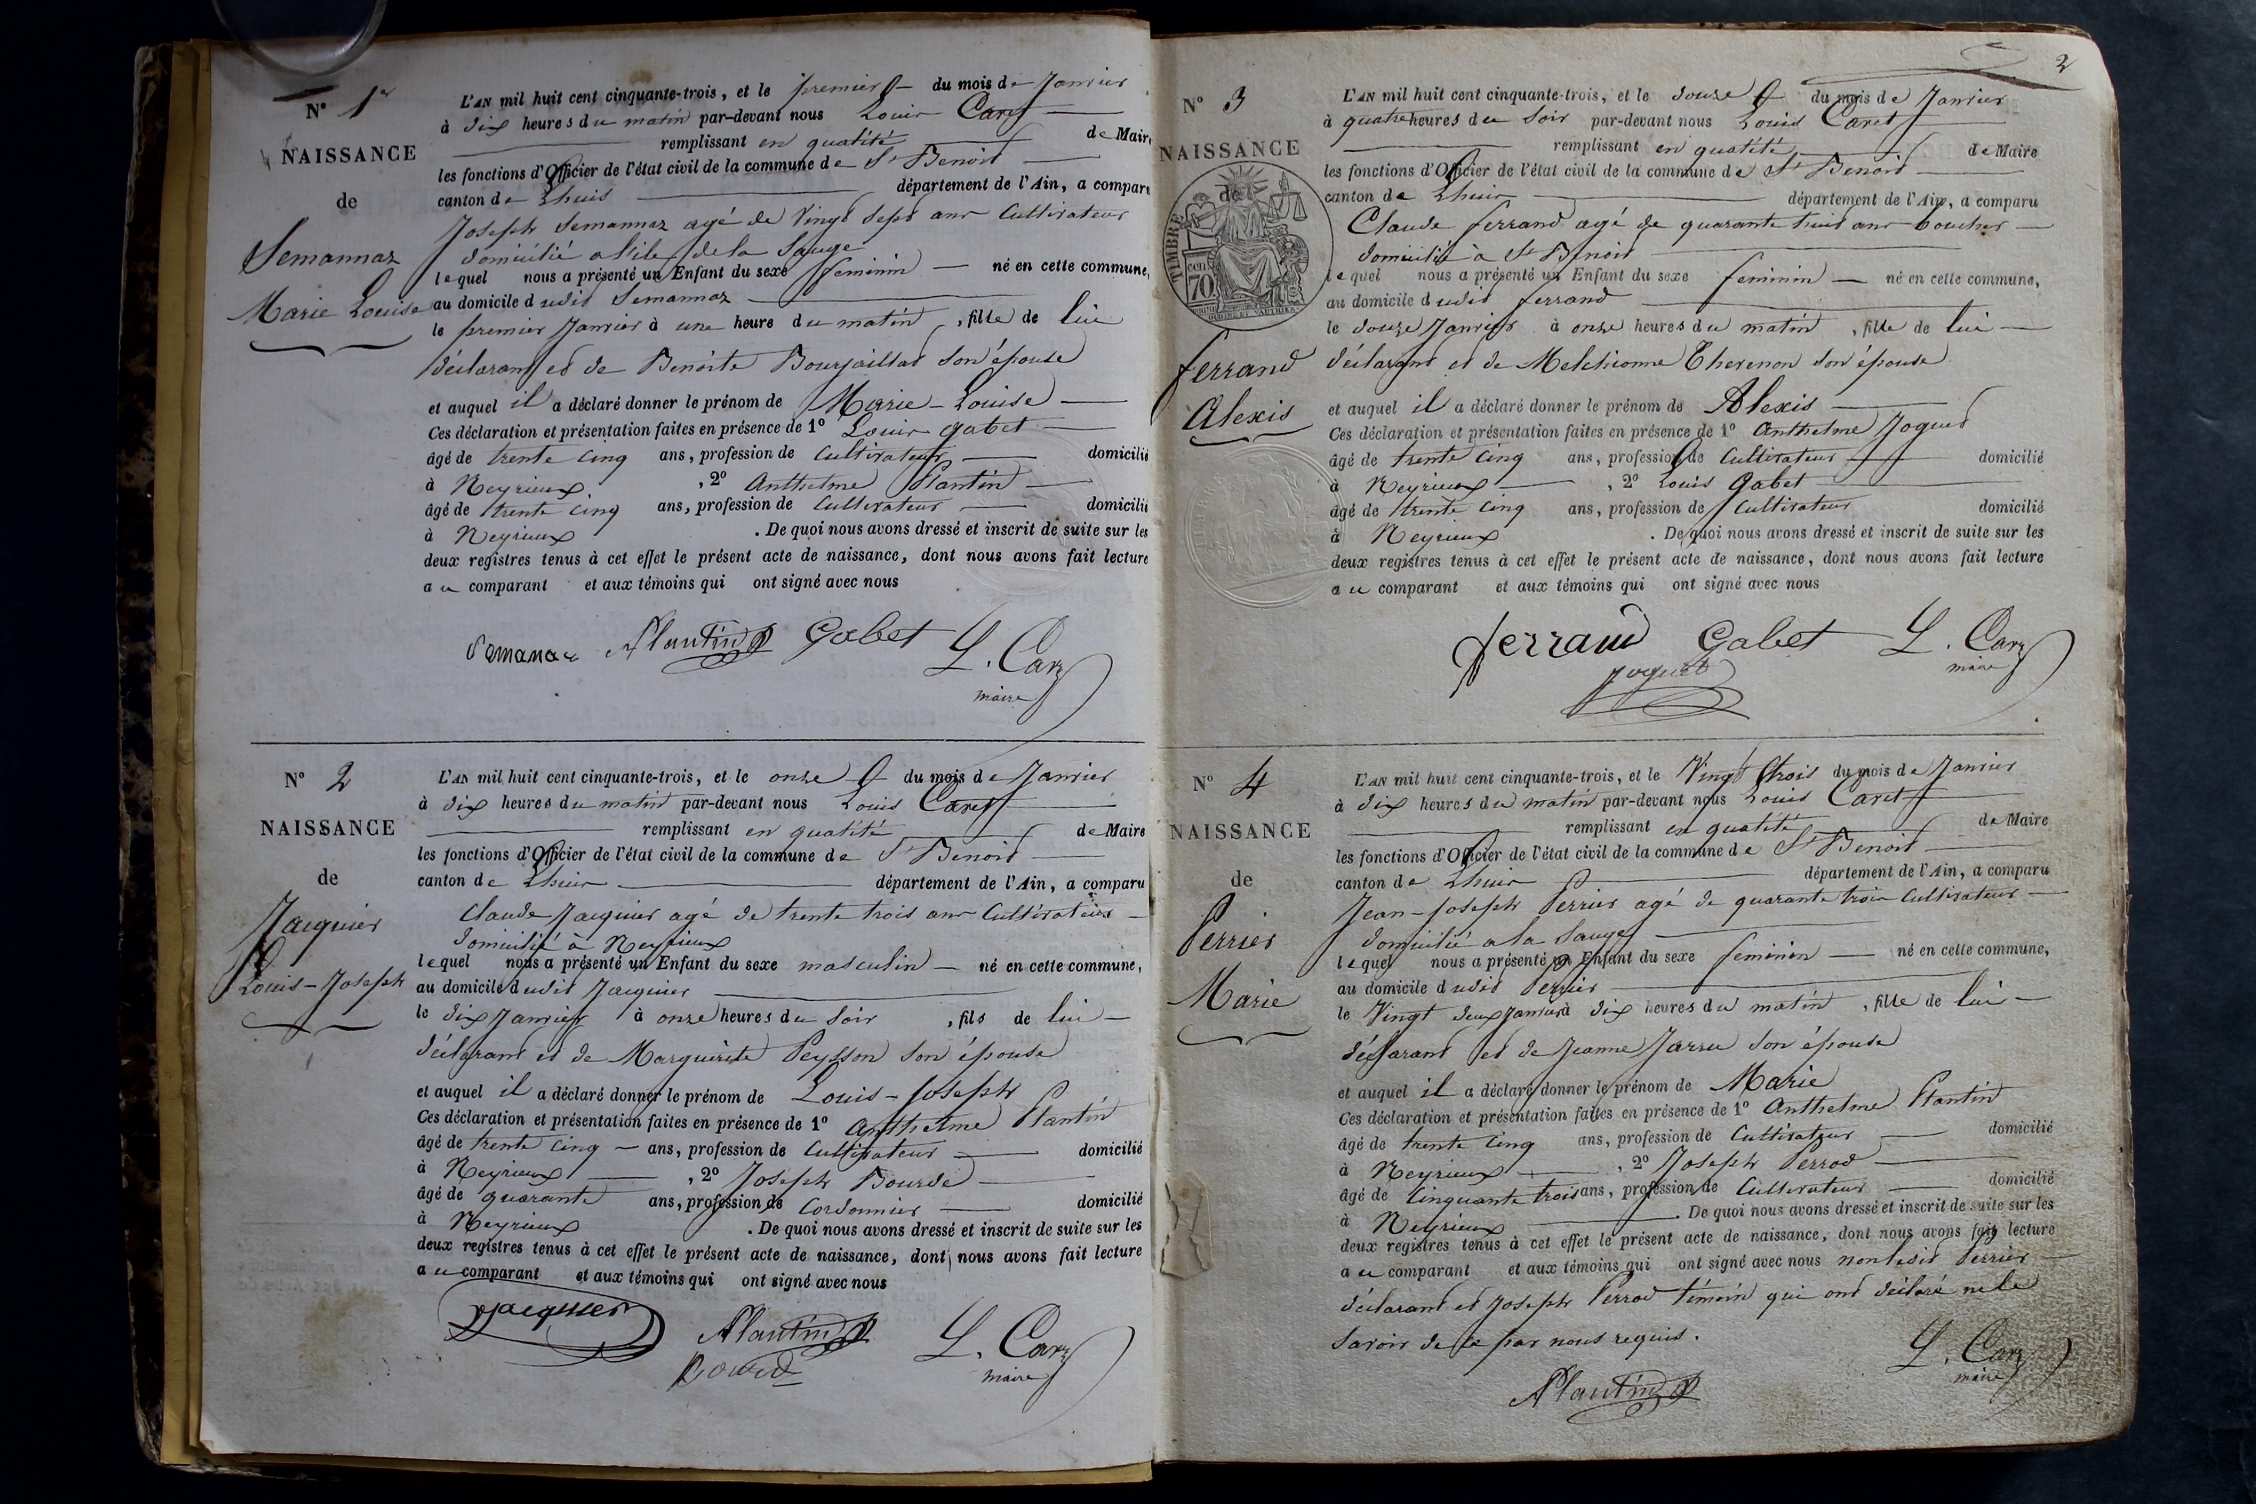 N° 1er
NAISSANCE
de
Semannaz
Marie Louise
L'AN mil huit cent cinquante-trois, et le premier du mois de Janvier
à dix heures du matin par-devant nous Louis Caret
remplissant en qualité de Maire
les fonctions d'Officier de l'état civil de la commune de St Benoit
canton de Lhuis département de l'Ain, a comparu
Joseph Semannaz agé de Vingt sept ans Cultivateur
domicilié a l'ile de la Sauge
lequel nous a présenté un Enfant du sexe feminin né en cette commune,
au domicile dudit Semannaz
le premier Janvier à une heure du matin, fille de lui
déclarant et de Benoite Bourjaillat son épouse
et auquel il a déclaré donner le prénom de Marie-Louise
Ces déclaration et présentation faites en présence de 1° Louis Gabet
âgé de trente cinq ans, profession de Cultivateur domicilié
à Neyrieux, 2° Anthelme Plantin
âgé de trente cinq ans, profession de Cultivateur domicilié
à Neyrieux. De quoi nous avons dressé et inscrit de suite sur les
deux registres tenus à cet effet le présent acte de naissance, dont nous avons fait lecture
au comparant et aux témoins qui ont signé avec nous
Semanaz APlantin Gabet L. Caret
maire
N° 2
NAISSANCE
de
Jacquier
Louis-Joseph
L'AN mil huit cent cinquante-trois, et le onze du mois de Janvier
à dix heures du matin par-devant nous Louis Caret
remplissant en qualité de Maire
les fonctions d'Officier de l'état civil de la commune de St Benoit
canton de Lhuis département de l'Ain, a comparu
Claude Jacquier agé de trente trois ans Cultivateur
domicilié à Neyrieux
lequel nous a présenté un Enfant du sexe masculin né en cette commune,
au domicile dudit Jacquier
le dix Janvier à onze heures du soir, fils de lui
déclarant et de Marguerite Peysson son épouse
et auquel il a déclaré donner le prénom de Louis-Joseph
Ces déclaration et présentation faites en présence de 1° Anthelme Plantin
âgé de trente cinq ans, profession de Cultivateur domicilié
à Neyrieux, 2° Joseph Bourde
âgé de quarante ans, profession de Cordonnier domicilié
à Neyrieux. De quoi nous avons dressé et inscrit de suite sur les
deux registres tenus à cet effet le présent acte de naissance, dont nous avons fait lecture
au comparant et aux témoins qui ont signé avec nous
Jacquier APlantin L. Caret
Bourde maire
2
N° 3
NAISSANCE
de
TIMBRE
70 cen
Ferrand
Alexis
L'AN mil huit cent cinquante-trois, et le douze du mois de Janvier
à quatre heures du soir par-devant nous Louis Caret
remplissant en qualité de Maire
les fonctions d'Officier de l'état civil de la commune de St Benoit
canton de Lhuis département de l'Ain, a comparu
Claude Ferrand agé de quarante huit ans boucher
domicilié à St Benoit
lequel nous a présenté un Enfant du sexe feminin né en cette commune,
au domicile dudit Ferrand
le douze Janvier à onze heures du matin, fille de lui
déclarant et de Melchionne Thevenon son épouse
et auquel il a déclaré donner le prénom de Alexis
Ces déclaration et présentation faites en présence de 1° Anthelme Joguet
âgé de trente cinq ans, profession de Cultivateur domicilié
à Neyrieux, 2° Louis Gabet
âgé de trente cinq ans, profession de Cultivateur domicilié
à Neyrieux. De quoi nous avons dressé et inscrit de suite sur les
deux registres tenus à cet effet le présent acte de naissance, dont nous avons fait lecture
au comparant et aux témoins qui ont signé avec nous
Ferrand Gabet L. Caret
Joguet maire
N° 4
NAISSANCE
de
Perrier
Marie
L'AN mil huit cent cinquante-trois, et le Vingt trois du mois de Janvier
à dix heures du matin par-devant nous Louis Caret
remplissant en qualité de Maire
les fonctions d'Officier de l'état civil de la commune de St Benoit
canton de Lhuis département de l'Ain, a comparu
Jean-Joseph Perrier agé de quarante trois Cultivateur
domicilié a la Sauge
lequel nous a présenté un Enfant du sexe feminin né en cette commune,
au domicile dudit Perrier
le Vingt deux Janvier à dix heures du matin, fille de lui
déclarant et de Jeanne Jarru son épouse
et auquel il a déclaré donner le prénom de Marie
Ces déclaration et présentation faites en présence de 1° Anthelme Plantin
âgé de trente cinq ans, profession de Cultivateur domicilié
à Neyrieux, 2° Joseph Perrod
âgé de Cinquante trois ans, profession de Cultivateur domicilié
à Neyrieux. De quoi nous avons dressé et inscrit de suite sur les
deux registres tenus à cet effet le présent acte de naissance, dont nous avons fait lecture
au comparant et aux témoins qui ont signé avec nous non ledit Perrier
déclarant et Joseph Perrod témoin qui ont déclaré ne le
savoir de ce par nous requis.
APlantin L. Caret
maire